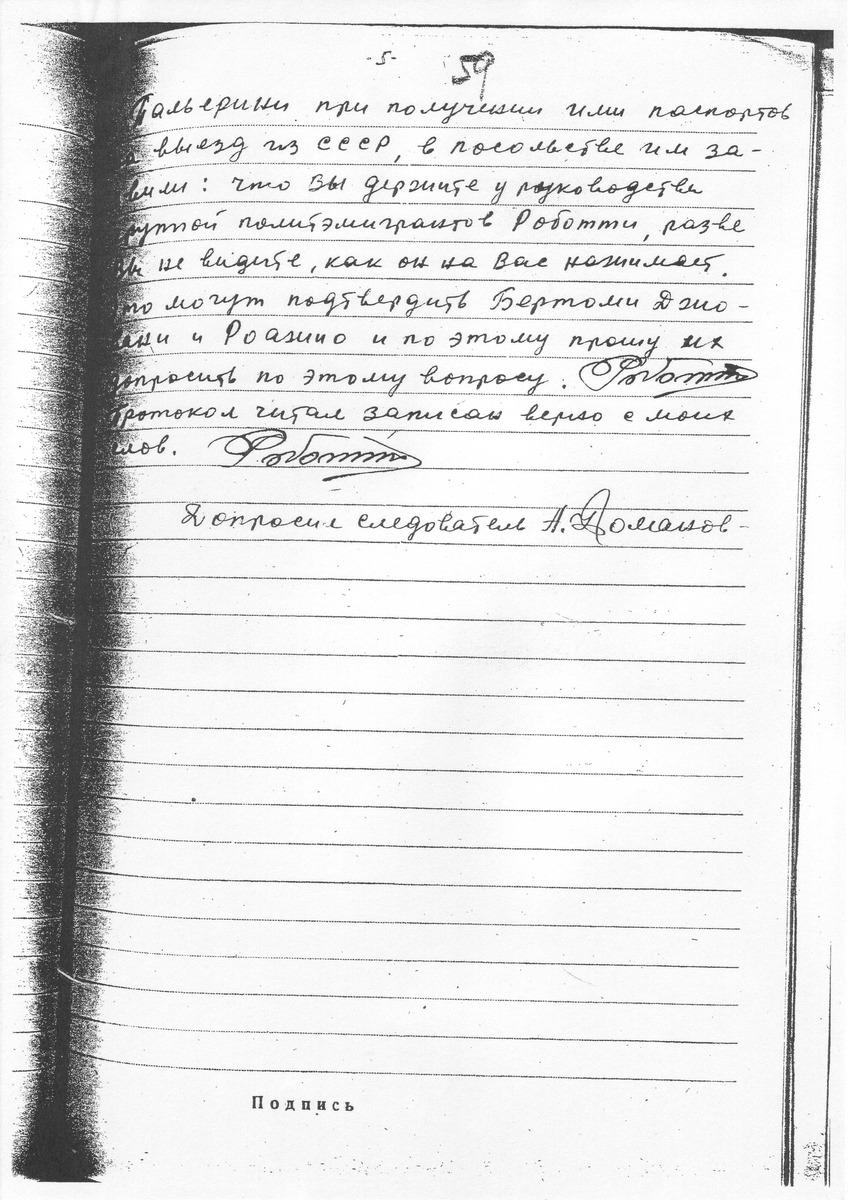 -5-
59
Гальерини при получении ими паспортов
выезд из СССР, в посольстве им за-
вили: что Вы держите у руководства
группой политэмигрантов Роботти, разве
Вы не видите, как он на Вас нажимает.
Это могут подтвердить Бертони Джо-
вани и Роазио и по этому прошу их
допросить по этому вопросу. Роботти
Протокол читал записан верно с моих
слов. Роботти
Допросил следователь А.
Подпись